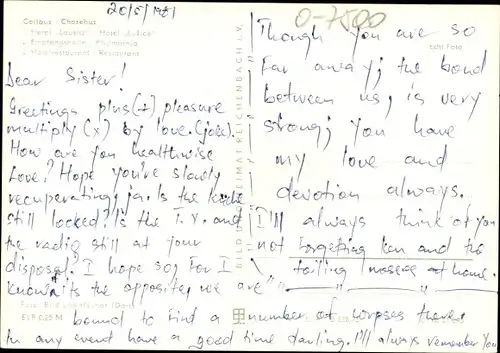 20/5/1981
0-7500
Cottbus · Chosebuz
Hotel „Lausitz" Hotel „Łužica"
Empfangshalle
Hotelrestaurant · Restaurant
Echt Foto
Dear Sister!
Greetings plus (+) pleasure
multiply (x) by love. (joke).
How are you healthwise
Love? Hope you've slowly
recuperating; ja. Is the
still locked? Is the T.V. and
the radio still at your
disposal? I hope so; For I
know its the opposite, we are
bound to find a number of corpses there
In any event have a good time darling. I'll always remember You
Though You are so
Far away; the bond
between us, is very
strong; You have
my love and
devotion always.
I'll always think of you
not forgetting Ken and the
toiling masses at home.
BILD UND HEIMAT REICHENBACH i. V.
Foto: Bild und Heimat
EVP 0,25 M